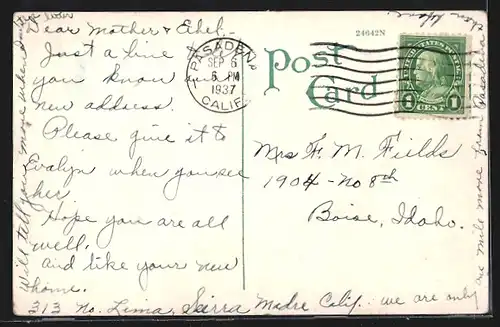 Dear Mother & Ethel -
Just a line to let
you know our
new address.
Please give it to
Evalyn when you see
her.
Hope you are all
well.
and like your new
home.
313 No. Lima, Sierra Madre Calif. we are only
one mile more from Pasadena
than before
Will tell you more when I write
later
24642N
Post
Card
PASADENA
SEP 6
6 PM
1937
CALIF.
UNITED STATES
1 CENT 1
Mrs F. M. Fields
1904 - No 8th
Boise, Idaho.